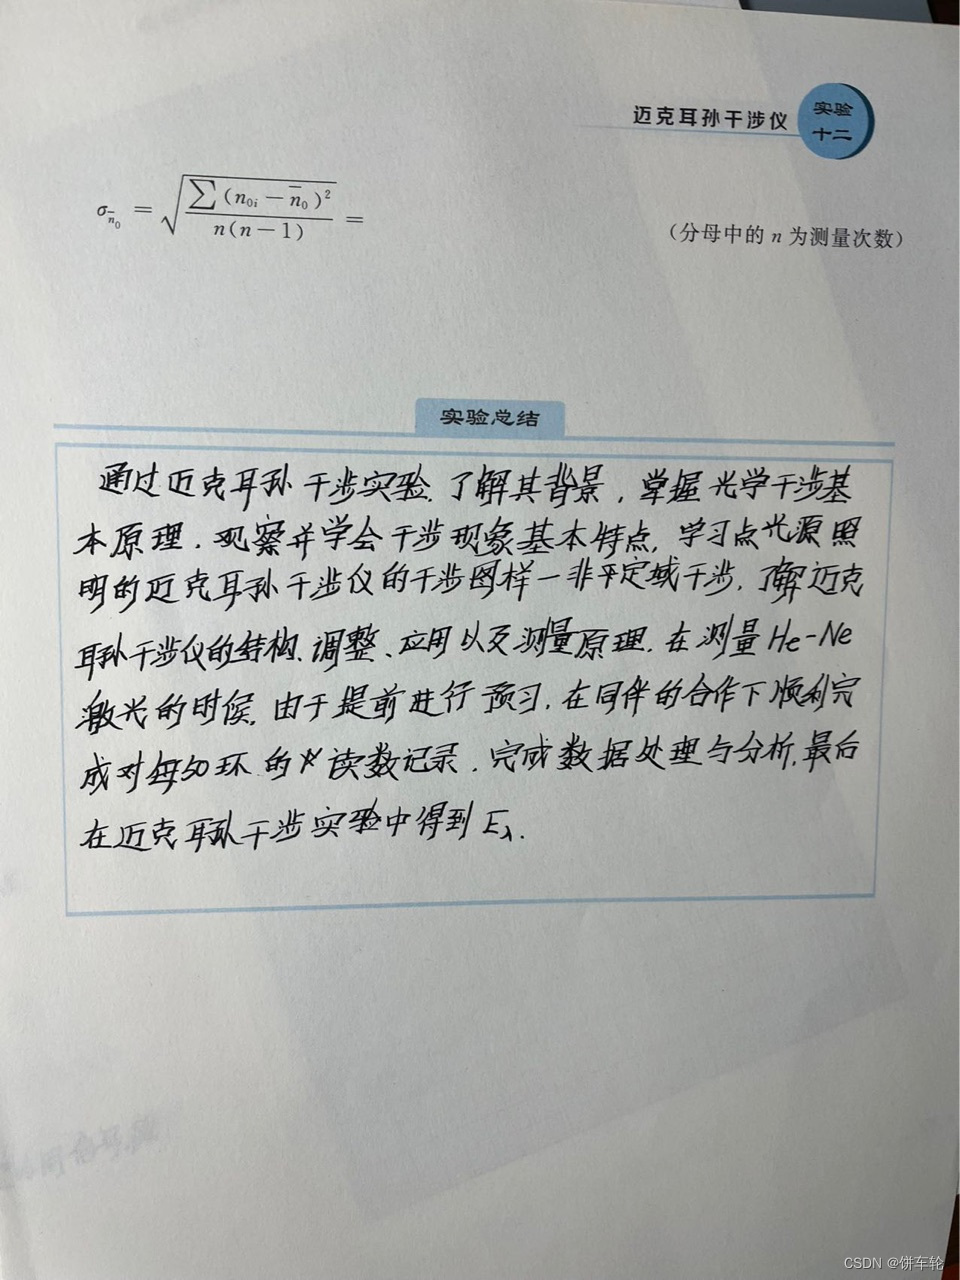 迈克耳孙干涉仪
实验
十二
σ_{n̄₀} = √(∑(n₀ᵢ − n̄₀)² / n(n−1)) =
(分母中的 n 为测量次数)
实验总结
通过迈克耳孙干涉实验.了解其背景,掌握光学干涉基
本原理.观察并学会干涉现象基本特点,学习点光源照
明的迈克耳孙干涉仪的干涉图样一非平定域干涉,了解迈克
耳孙干涉仪的结构、调整、应用以及测量原理.在测量He-Ne
激光的时候,由于提前进行预习,在同伴的合作下顺利完
成对每50环的读数记录.完成数据处理与分析,最后
在迈克耳孙干涉实验中得到 Eλ.
CSDN @饼车轮